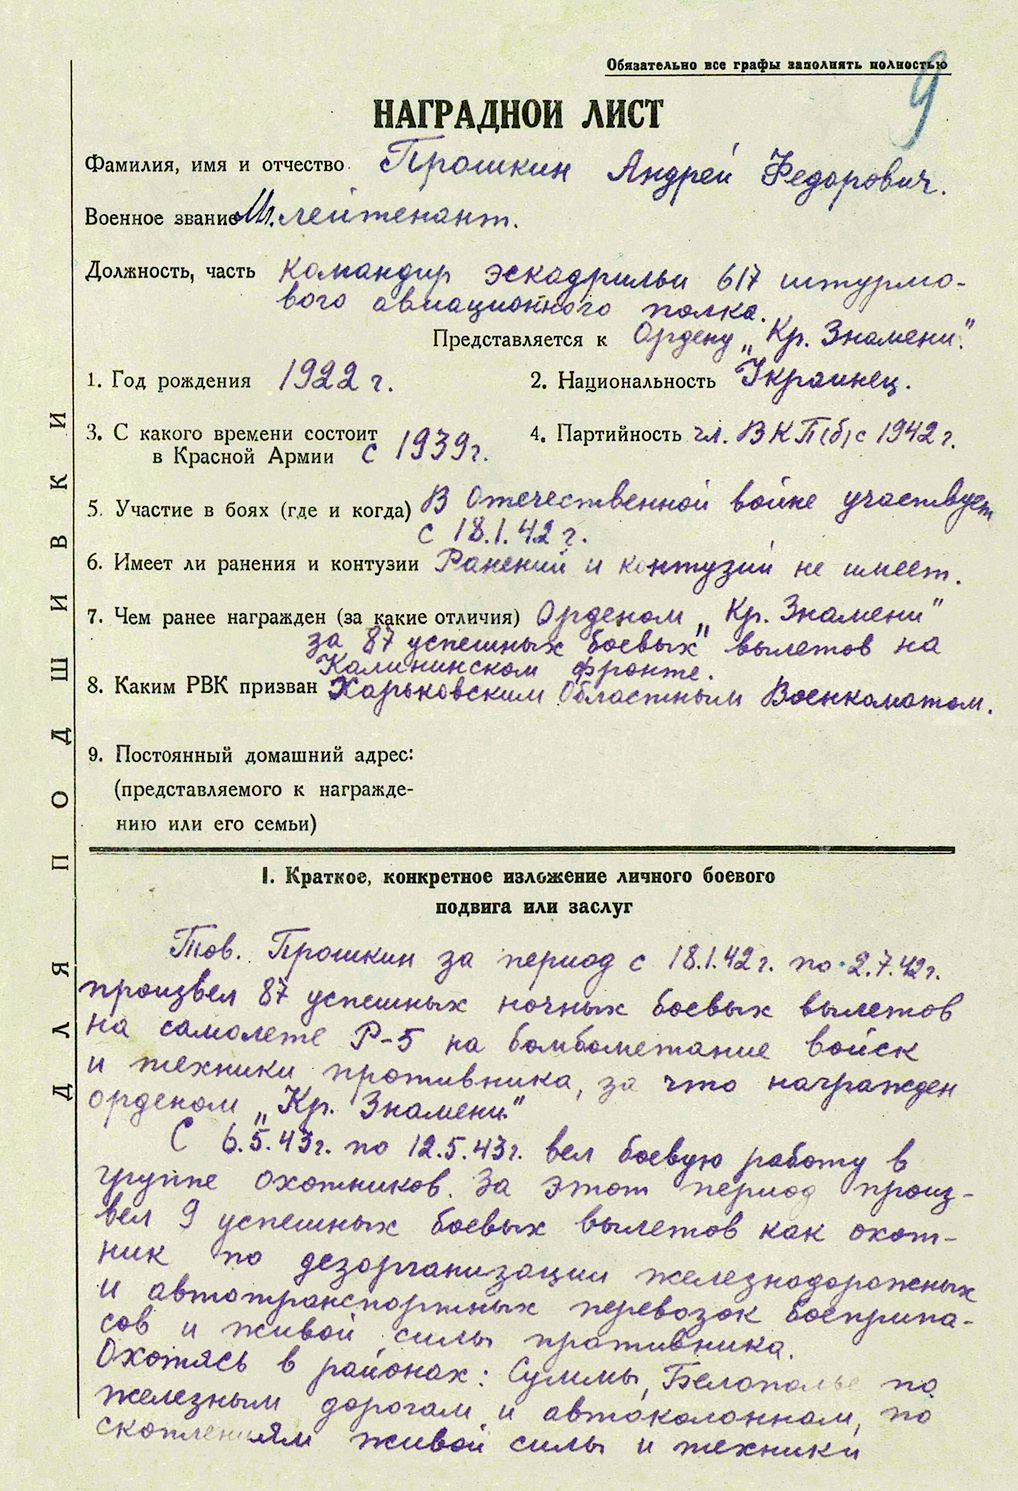 Обязательно все графы заполнять полностью
9
НАГРАДНОЙ ЛИСТ
Фамилия, имя и отчество Прошкин Андрей Федорович.
Военное звание Мл. лейтенант.
Должность, часть Командир эскадрильи 617 штурмо-
вого авиационного полка.
Представляется к Ордену „Кр. Знамени".
1. Год рождения 1922 г.
2. Национальность Украинец.
3. С какого времени состоит
в Красной Армии с 1939 г.
4. Партийность чл. ВКП(б) с 1942 г.
5. Участие в боях (где и когда) В Отечественной войне участвует
с 18.1.42 г.
6. Имеет ли ранения и контузии Ранений и контузий не имеет.
7. Чем ранее награжден (за какие отличия) Орденом „Кр. Знамени"
за 87 успешных боевых вылетов на
Калининском фронте.
8. Каким РВК призван Харьковским Областным Военкоматом.
9. Постоянный домашний адрес:
(представляемого к награжде-
нию или его семьи)
I. Краткое, конкретное изложение личного боевого
подвига или заслуг
Тов. Прошкин за период с 18.1.42 г. по 2.7.42 г.
произвел 87 успешных ночных боевых вылетов
на самолете Р-5 на бомбометание войск
и техники противника, за что награжден
орденом „Кр. Знамени"
С 6.5.43 г. по 12.5.43 г. вел боевую работу в
группе охотников. За этот период произ-
вел 9 успешных боевых вылетов как охот-
ник по дезорганизации железнодорожных
и автотранспортных перевозок боеприпа-
сов и живой силы противника.
Охотясь в районах: Суммы, Белополье по
железным дорогам и автоколоннам, по
скоплениям живой силы и техники
ДЛЯ ПОДШИВКИ